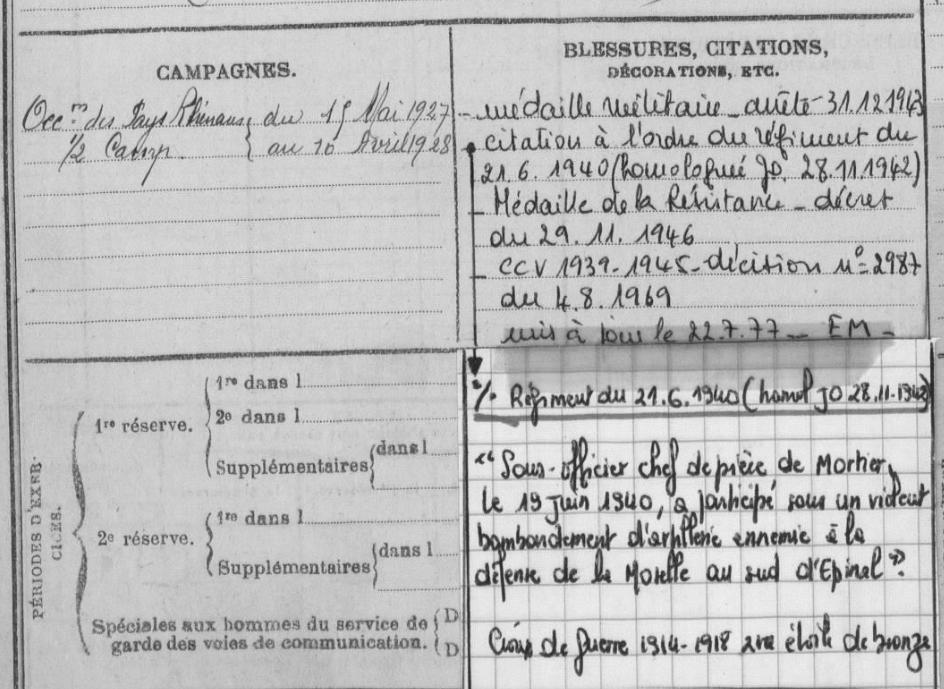 CAMPAGNES.
Occ.on des Pays Rhénans { du 15 Mai 1927
1/2 Camp. { au 10 Avril 1928
BLESSURES, CITATIONS,
DÉCORATIONS, ETC.
- médaille militaire - 31.12.1943
citation à l'ordre du régiment du
21.6.1940 (homologué JO. 28.11.1942)
- Médaille de la Résistance - décret
du 29.11.1946
- CCV 1939-1945 - décision n° = 2987
du 4.8.1969
mis à jour le 22.7.77 - EM -
PÉRIODES D'EXER-
CICES.
1re réserve.
1re dans l
2e dans l
Supplémentaires { dans l
2e réserve.
1re dans l
Supplémentaires { dans l
Spéciales aux hommes du service de { D
garde des voies de communication. { D
Régiment du 21.6.1940 (homol JO 28.11.1942)
"Sous-officier chef de pièce de Mortier,
le 19 juin 1940, a participé sous un violent
bombardement d'artillerie ennemie à la
défense de la Moselle au sud d'Epinal".
Croix de guerre 1914-1918 avec étoile de bronze